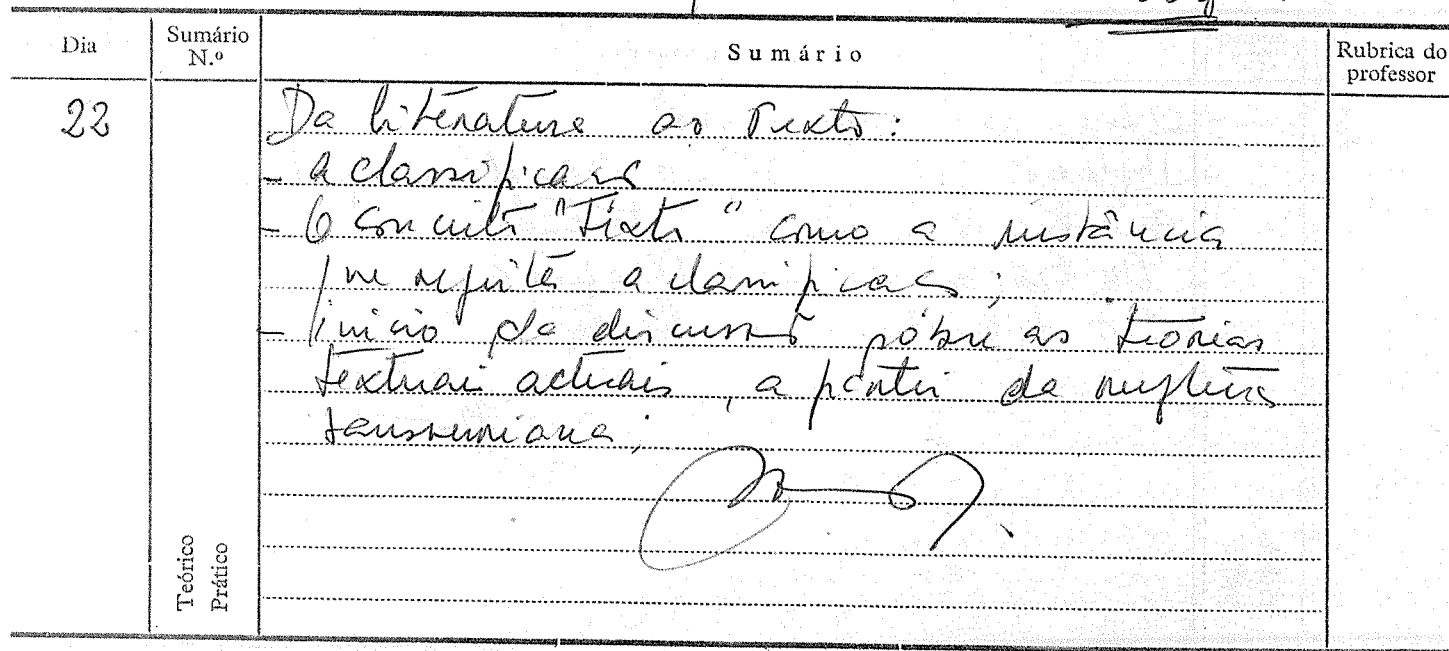 Dia
Sumário N.º
Sumário
Rubrica do professor
22
Da literatura ao Texto:
- a classificação
- O conceito "Texto" como a instância
que rejeita a classificação;
- início da discussão sobre as teorias
textuais actuais, a partir da reflexão
saussuriana;
Teórico
Prático